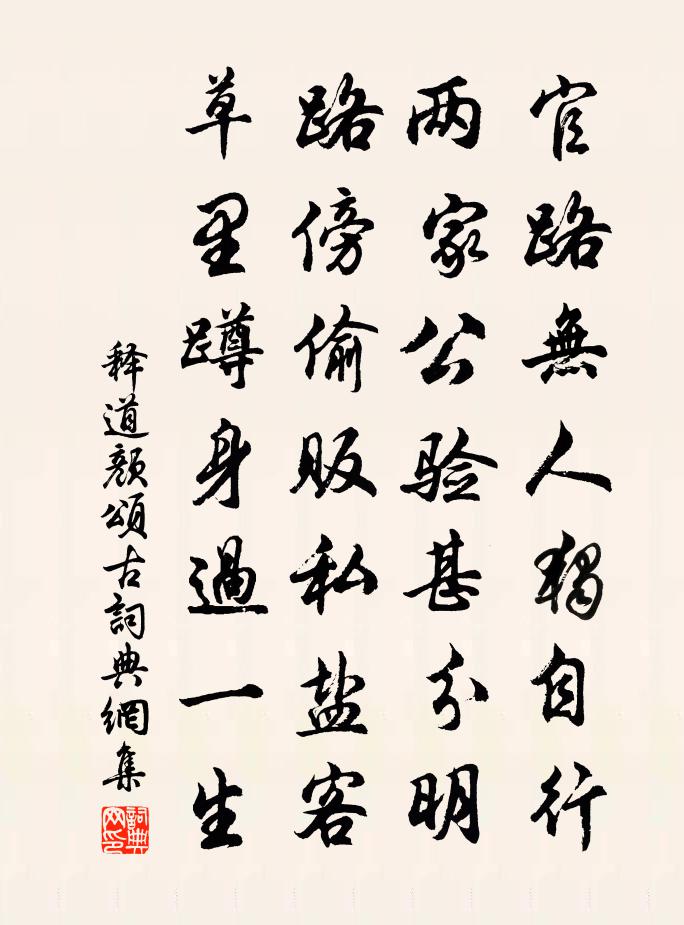 官路無人獨自行
两家公验甚分明
路傍偷販私盐客
草里蹲身過一生
释道颜頌古詞典網集
詞典网印